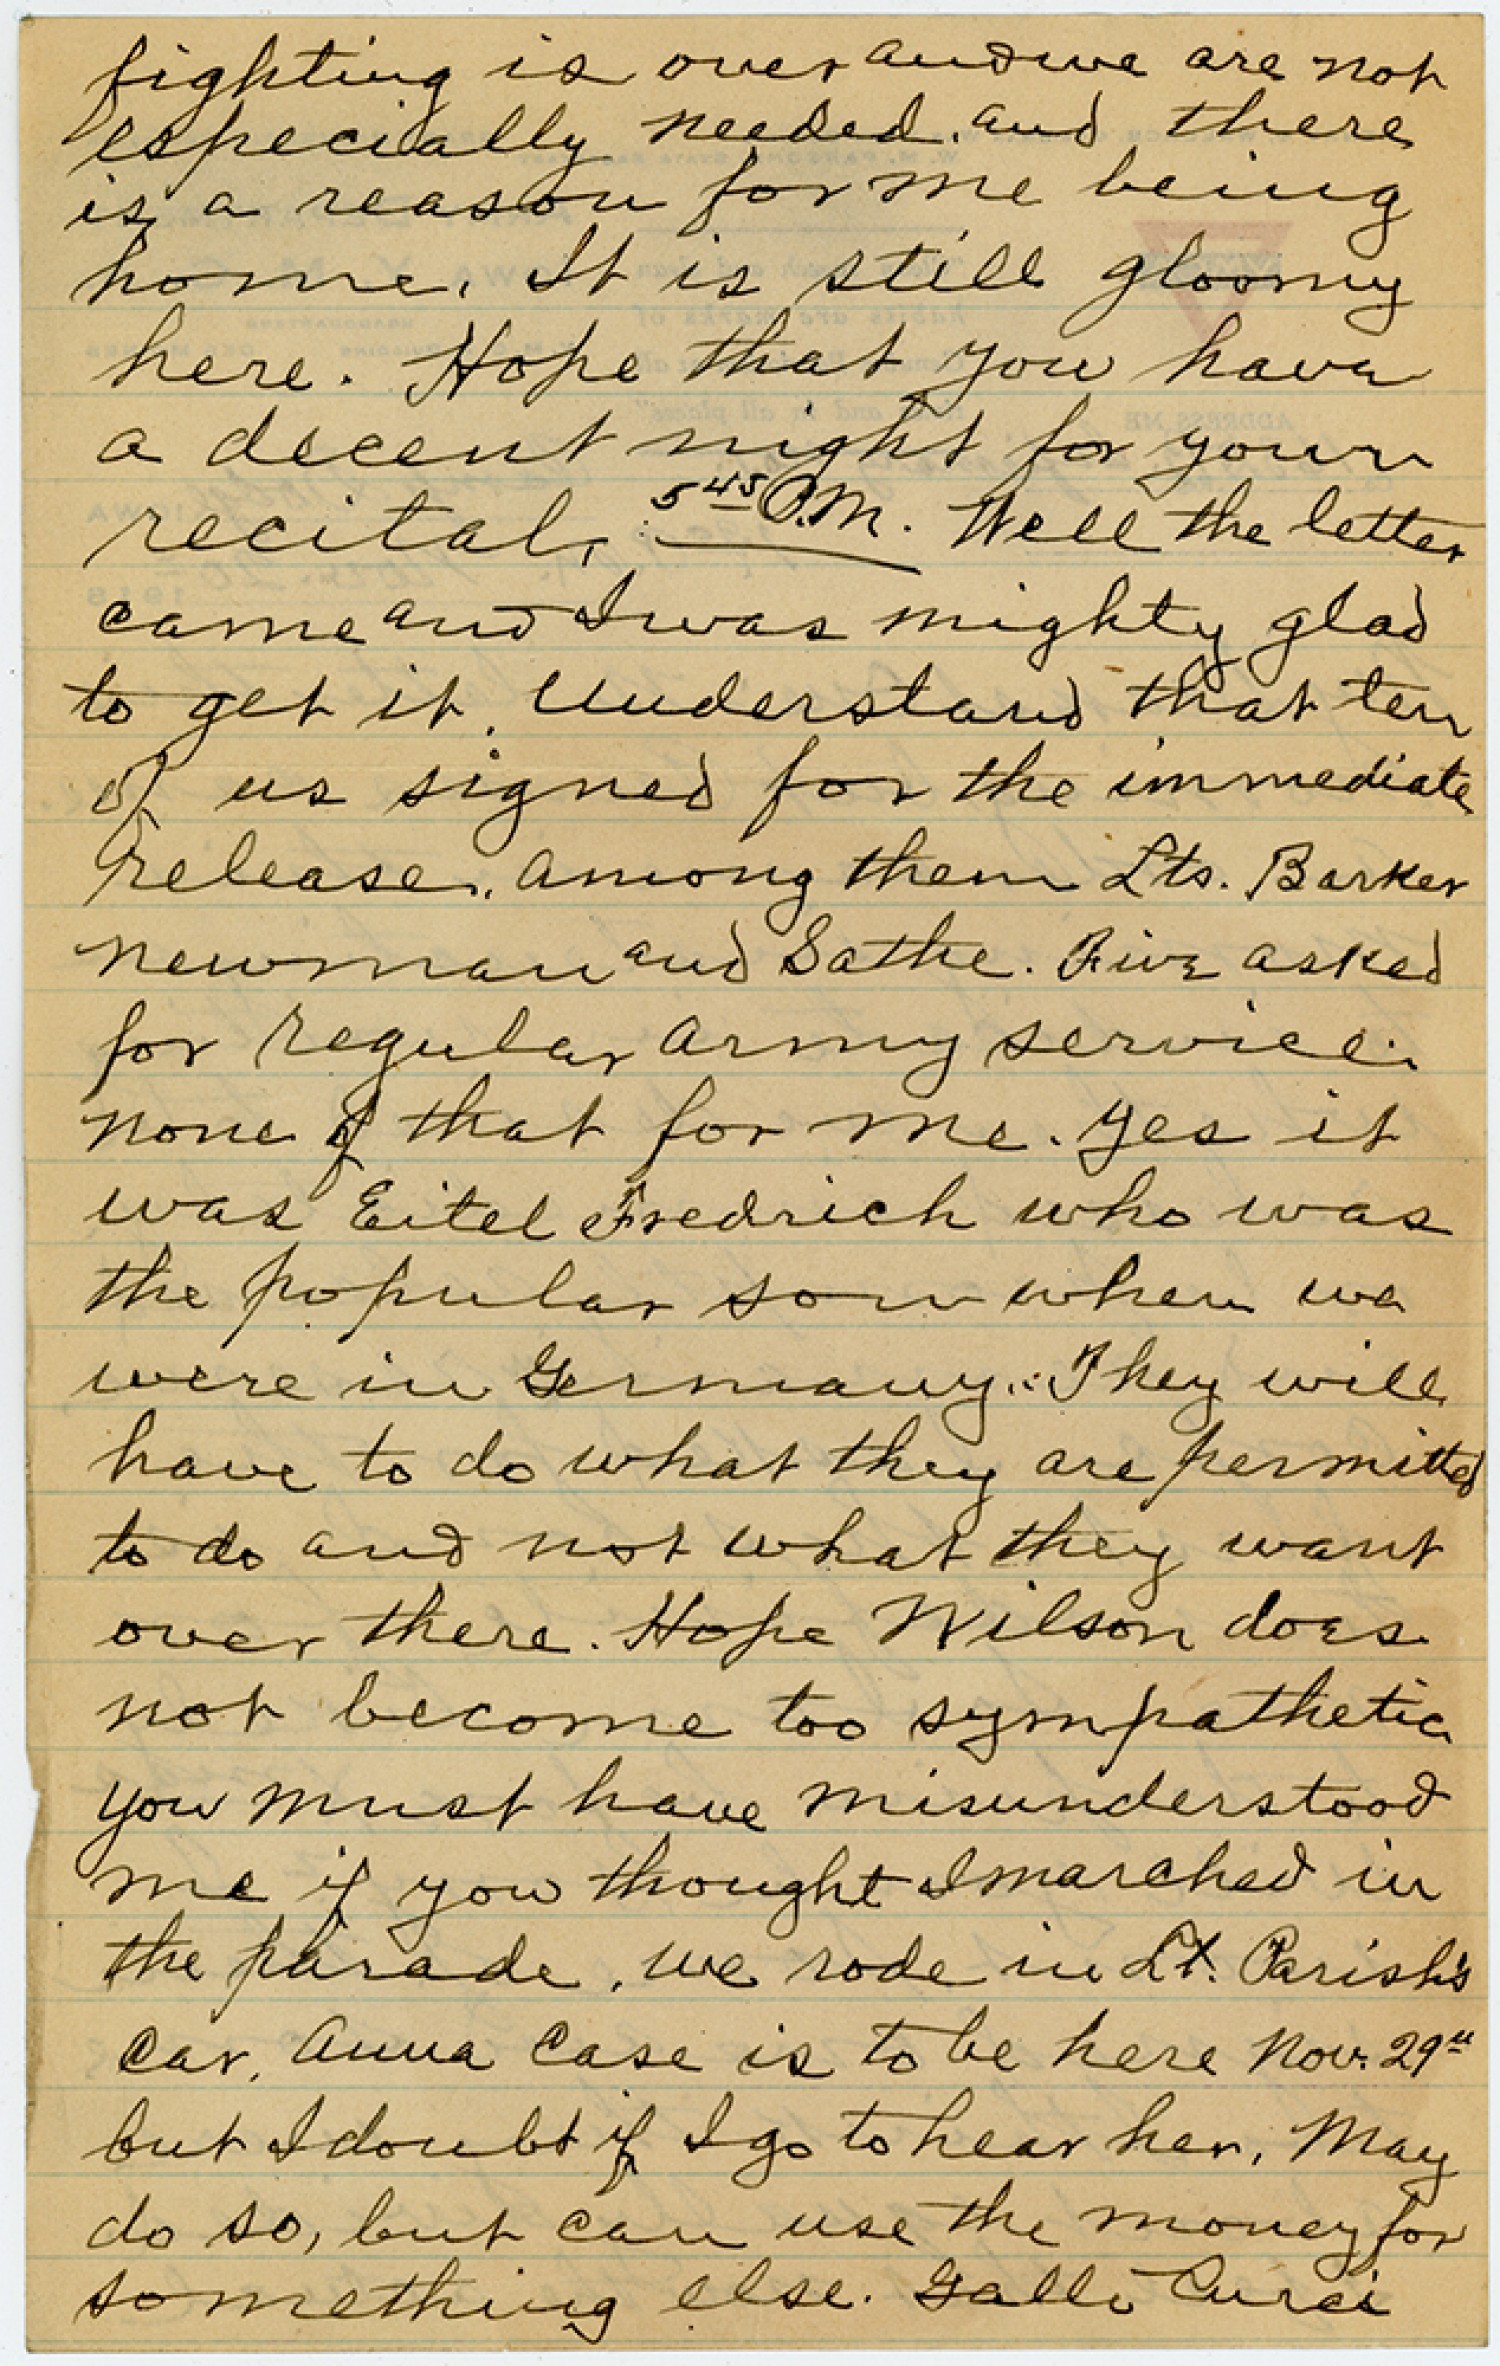 fighting is over and we are not
especially needed. and there
is a reason for me being
home. It is still gloomy
here. Hope that you have
a decent night for your
recital. 5 45 P.M. Well the letter
came and I was mighty glad
to get it. Understand that ten
of us signed for the immediate
release. among them Lts. Barker
Newman and Sathe. Five asked
for regular army service.
none of that for me. Yes it
was Eitel Fredrich who was
the popular son when we
were in Germany. They will
have to do what they are permitted
to do and not what they want
over there. Hope Wilson does
not become too sympathetic
you must have misunderstood
me if you thought I marched in
the parade. we rode in Lt. Parish's
car. Anna Case is to be here Nov. 29th
but I doubt if I go to hear her. May
do so, but can use the money for
something else. Galli Curci